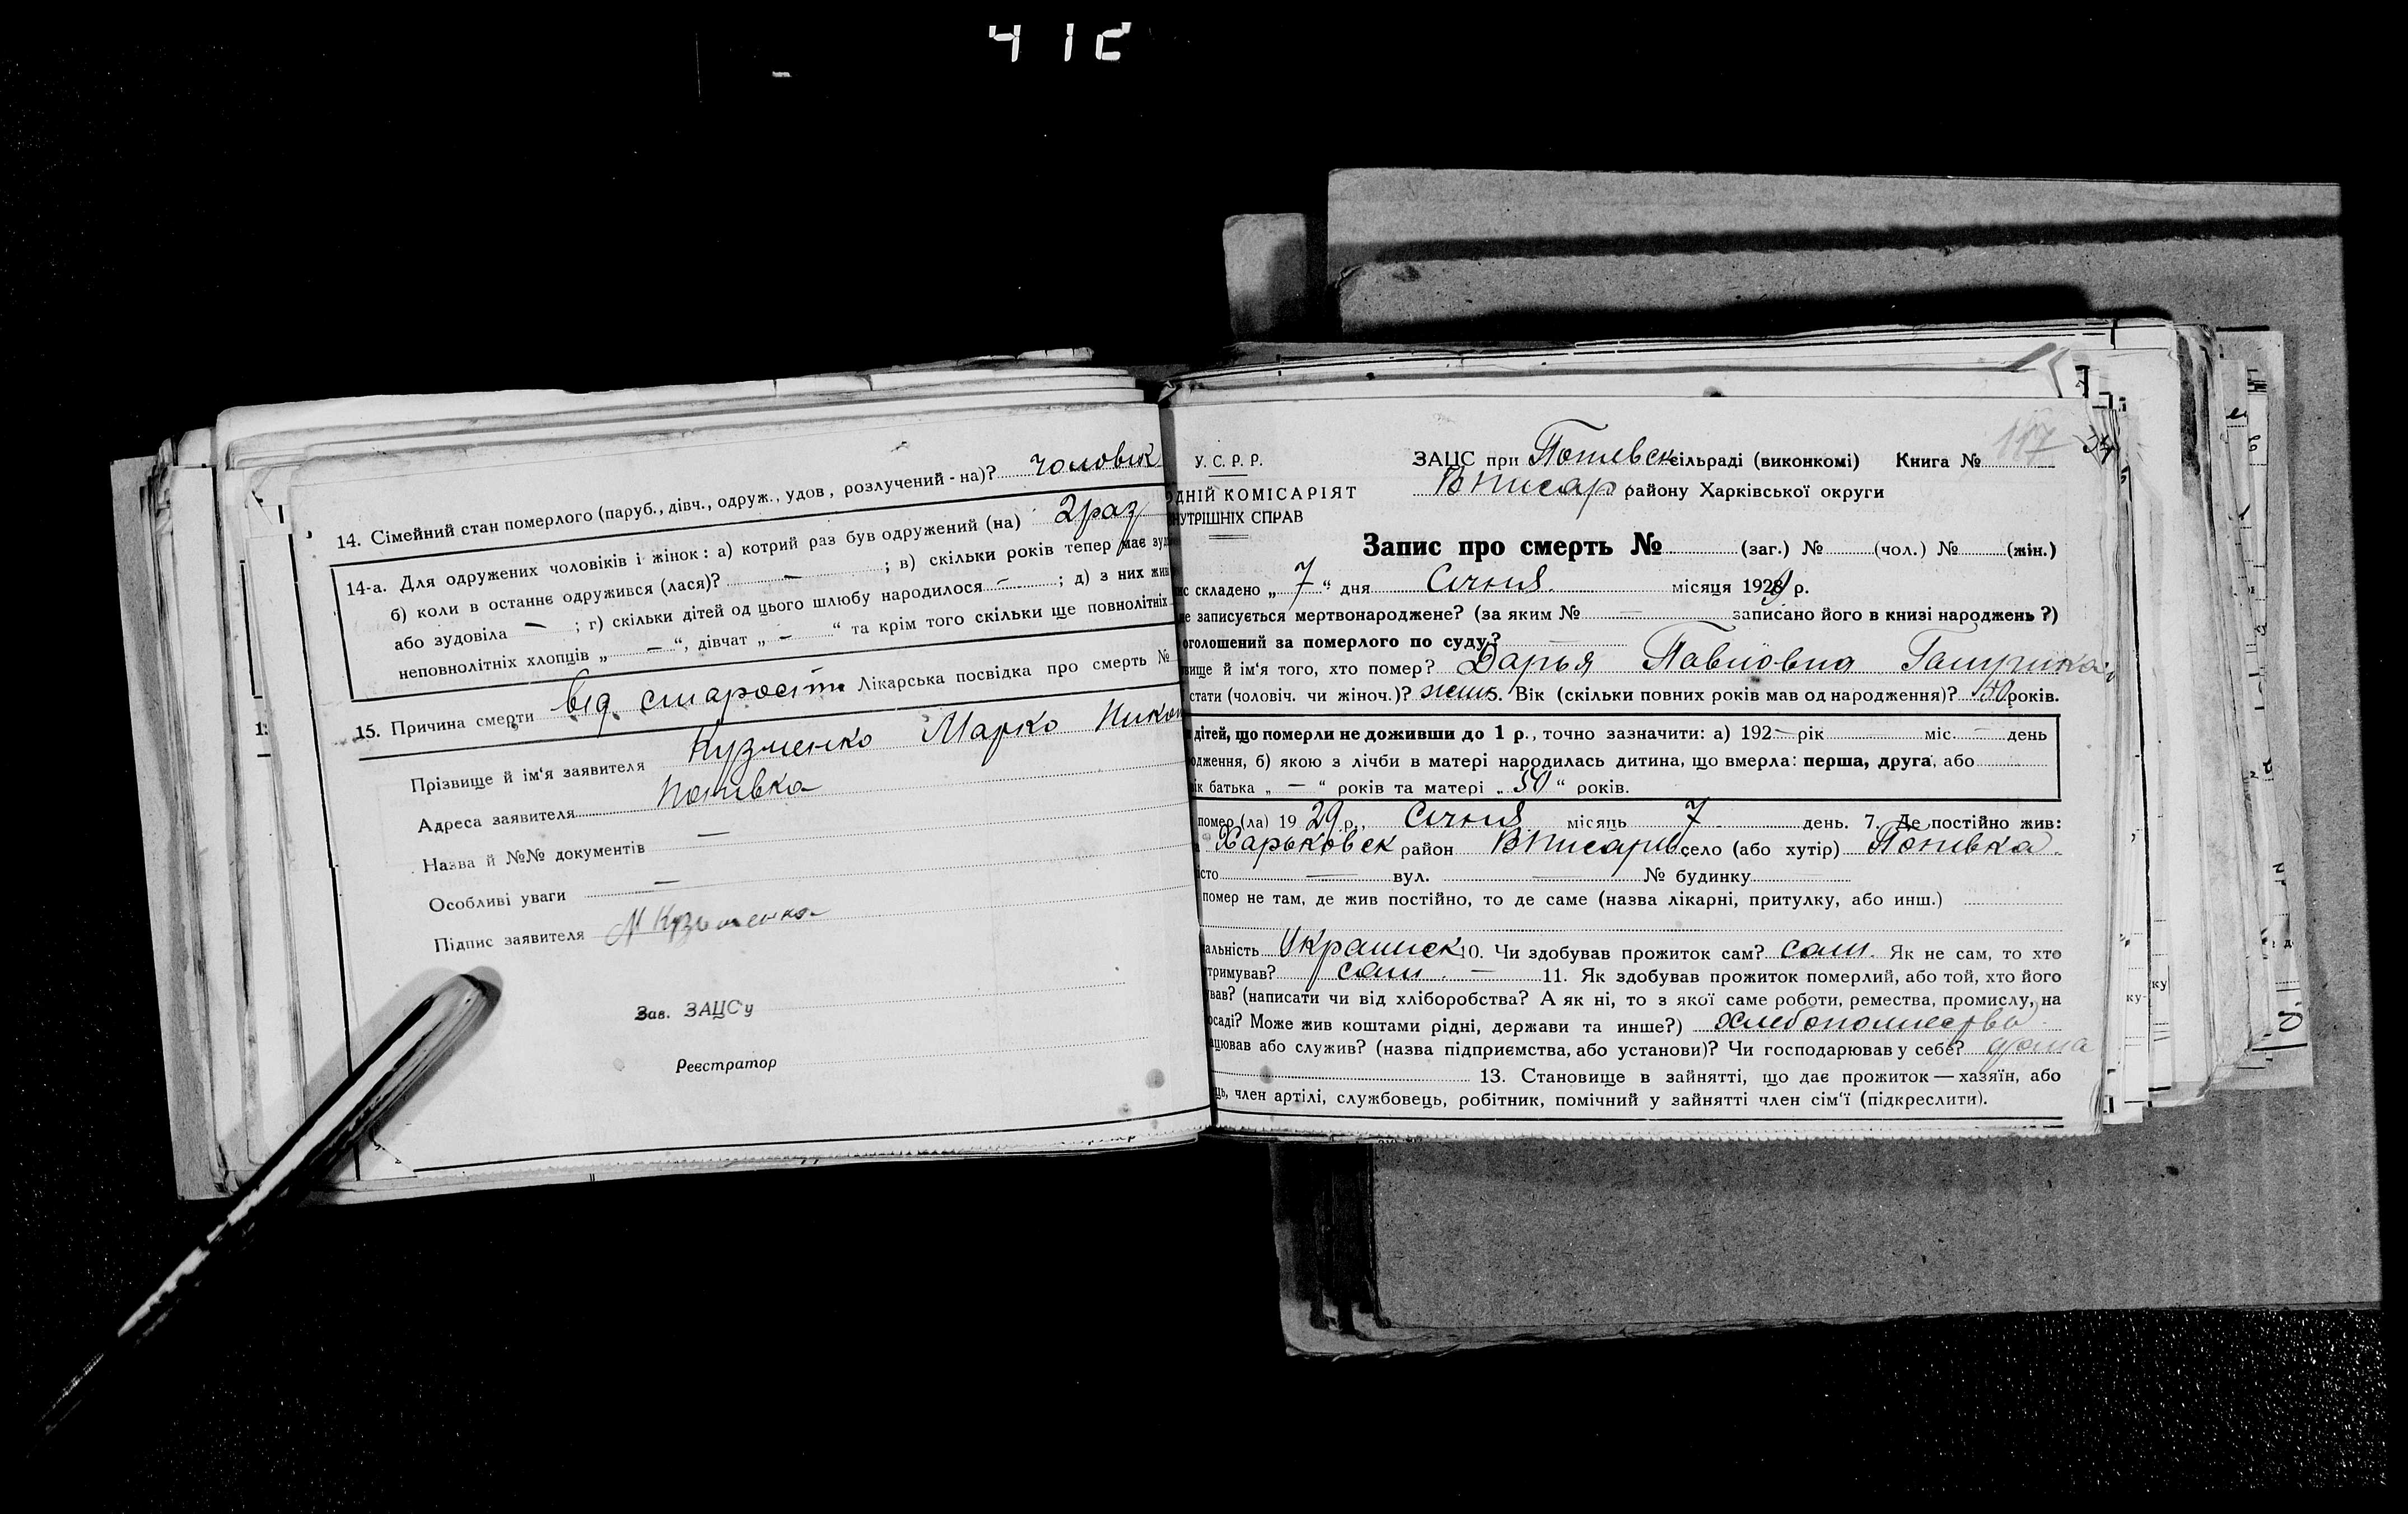 14. Сімейний стан померлого (паруб., дівч., одруж., удов., розлучений-на)? чоловік
14-а. Для одружених чоловіків і жінок: а) котрий раз був одружений (на) 2 раз
б) коли в останнє одружився (лася)? — ; в) скільки років тепер має
або зудовіла — ; г) скільки дітей од цього шлюбу народилося — ; д) з них
неповнолітніх хлопців „ — “, дівчат „ — “ та крім того скільки ще повнолітніх
15. Причина смерти від старости Лікарська посвідка про смерть №
Прізвище й ім'я заявителя Кузменко Марко
Адреса заявителя Попивка
Назва й №№ документів —
Особливі уваги —
Підпис заявителя М Кузьменко
Зав. ЗАЦСу
Реєстратор
У. С. Р. Р.
КОМІСАРІЯТ
СПРАВ
ЗАЦС при сільраді (виконкомі) Книга № 117
району Харківської округи
Запис про смерть № (заг.) № (чол.) № (жін.)
складено „ 7 “ дня Січня місяця 1929 р.
записується мертвонароджене? (за яким № — записано його в книзі народжень?)
оголошений за померлого по суду? —
й ім'я того, хто помер? Дарья Павловна
стати (чоловіч. чи жіноч.)? Вік (скільки повних років мав од народження)? років.
дітей, що померли не доживши до 1 р., точно зазначити: а) 192— рік — міс. — день
б) якою з лічби в матері народилась дитина, що вмерла: перша, друга, або
батька „ — “ років та матері „ 50 “ років.
помер (ла) 1929 р., Січня місяць 7 день. 7. Де постійно жив:
Харьковск район село (або хутір) Попивка
— вул. — № будинку
помер не там, де жив постійно, то де саме (назва лікарні, притулку, або инш.)
10. Чи здобував прожиток сам? сам. Як не сам, то хто
сам. — 11. Як здобував прожиток померлий, або той, хто його
(написати чи від хліборобства? А як ні, то з якої саме роботи, ремества, промислу, на
Може жив коштами рідні, держави та инше?)
або служив? (назва підприємства, або установи)? Чи господарював у себе? дома
13. Становище в зайнятті, що дає прожиток — хазяїн, або
член артілі, службовець, робітник, помічний у зайнятті член сім'ї (підкреслити).